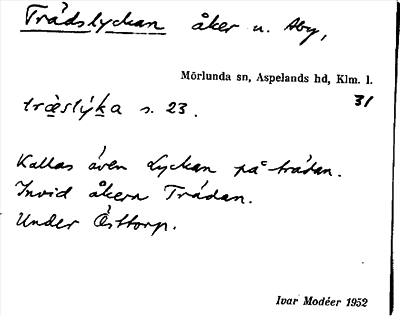 Trädslyckan åker u. Åby,
Mörlunda sn, Aspelands hd, Klm. l.
31
træslýka s. 23.
Kallas även Lyckan på trädan.
Invid åkern Trädan.
Under Östtorp.
Ivar Modéer 1952